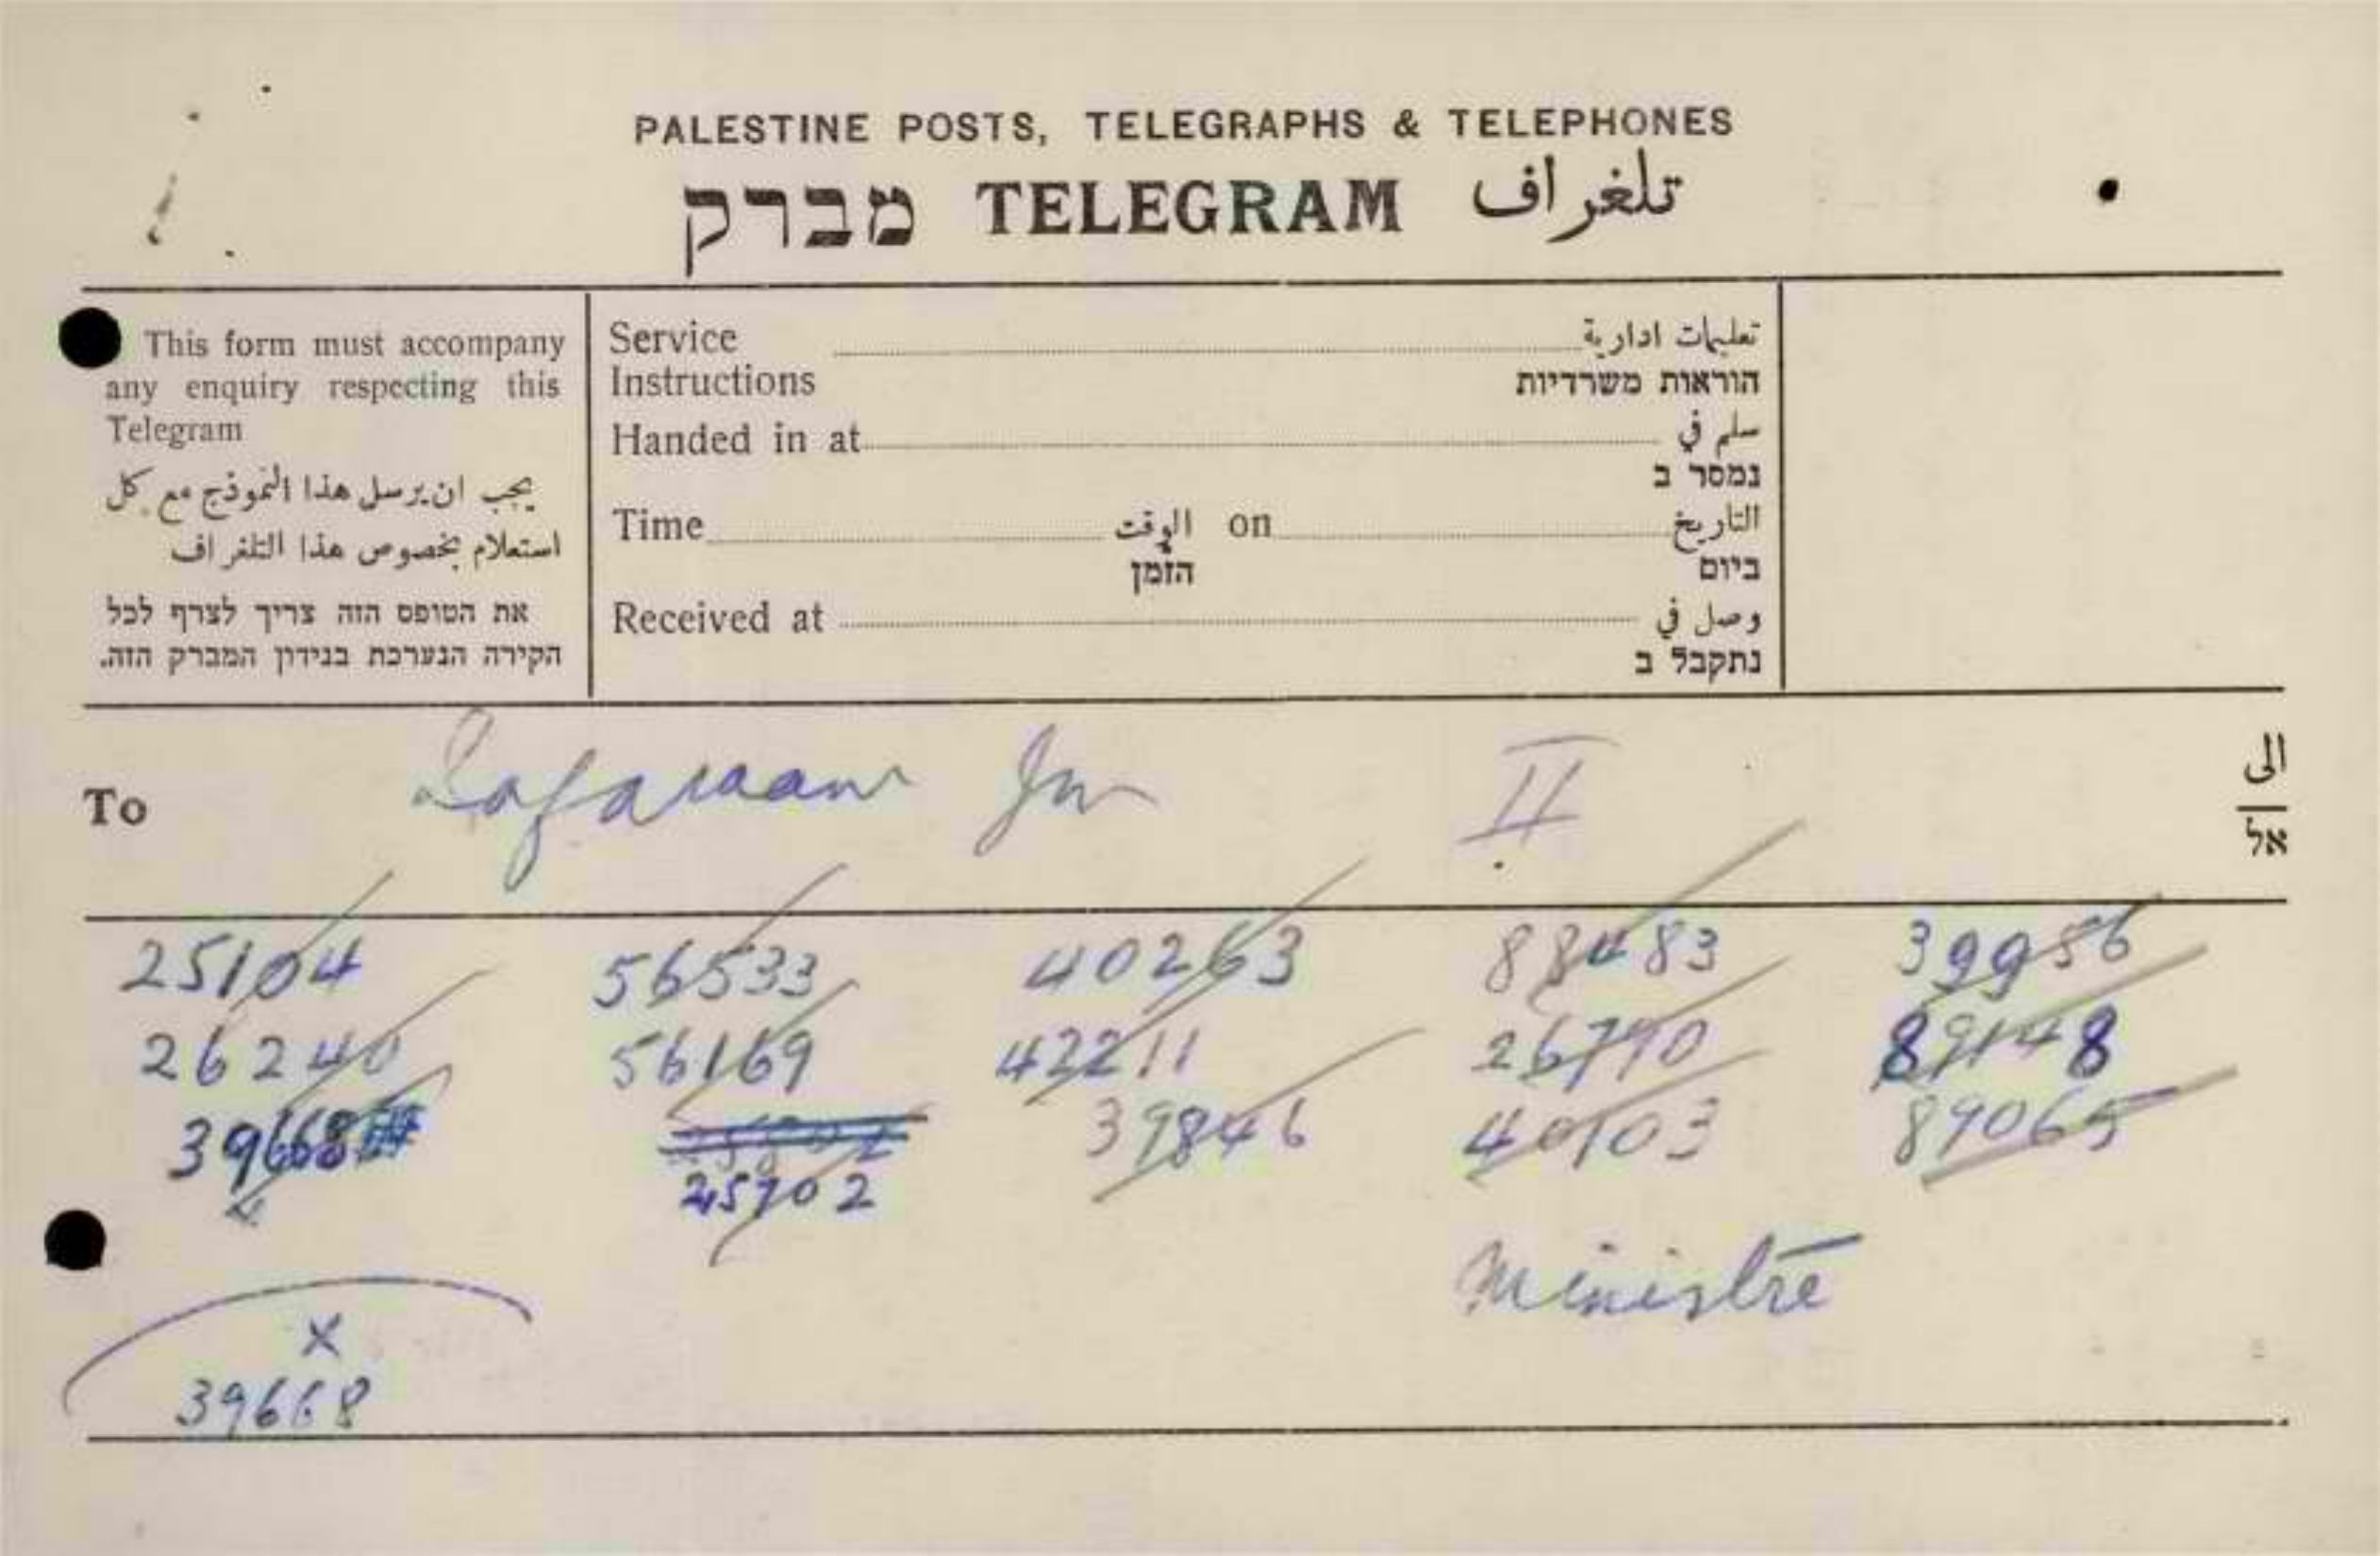 PALESTINE POSTS, TELEGRAPHS & TELEPHONES
מברק TELEGRAM تلغراف
This form must accompany
any enquiry respecting this
Telegram
يجب ان يرسل هذا النموذج مع كل
استعلام بخصوص هذا التلغراف
את הטופס הזה צריך לצרף לכל
הקירה הנערכת בנידון המברק הזה.
Service تعليمات ادارية
Instructions הוראות משרדיות
Handed in at سلم في
נמסר ב
Time الوقت on التاريخ
הזמן ביום
Received at وصل في
נתקבל ב
To II الى
אל
25104 56533 40263 88483 39956
26240 56169 42211 26790 89148
39668 39846 40103 89065
25902
Ministre
x
39668